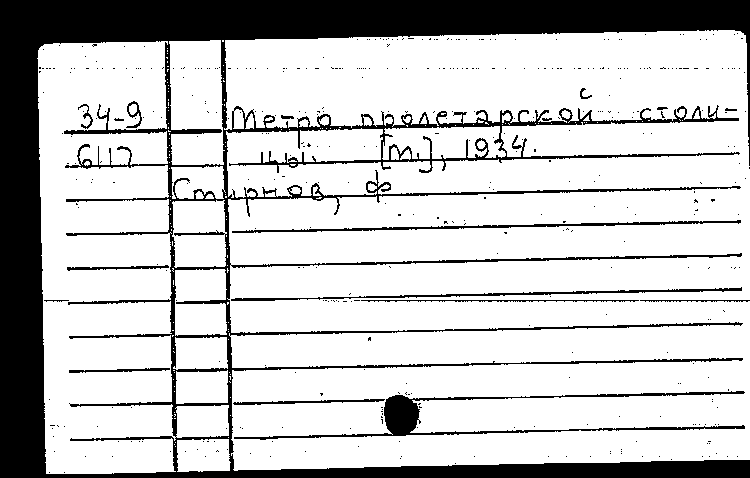 34-9 Метро пролетарской столи-
6117 цы. [М.], 1934.
Смирнов, Ф